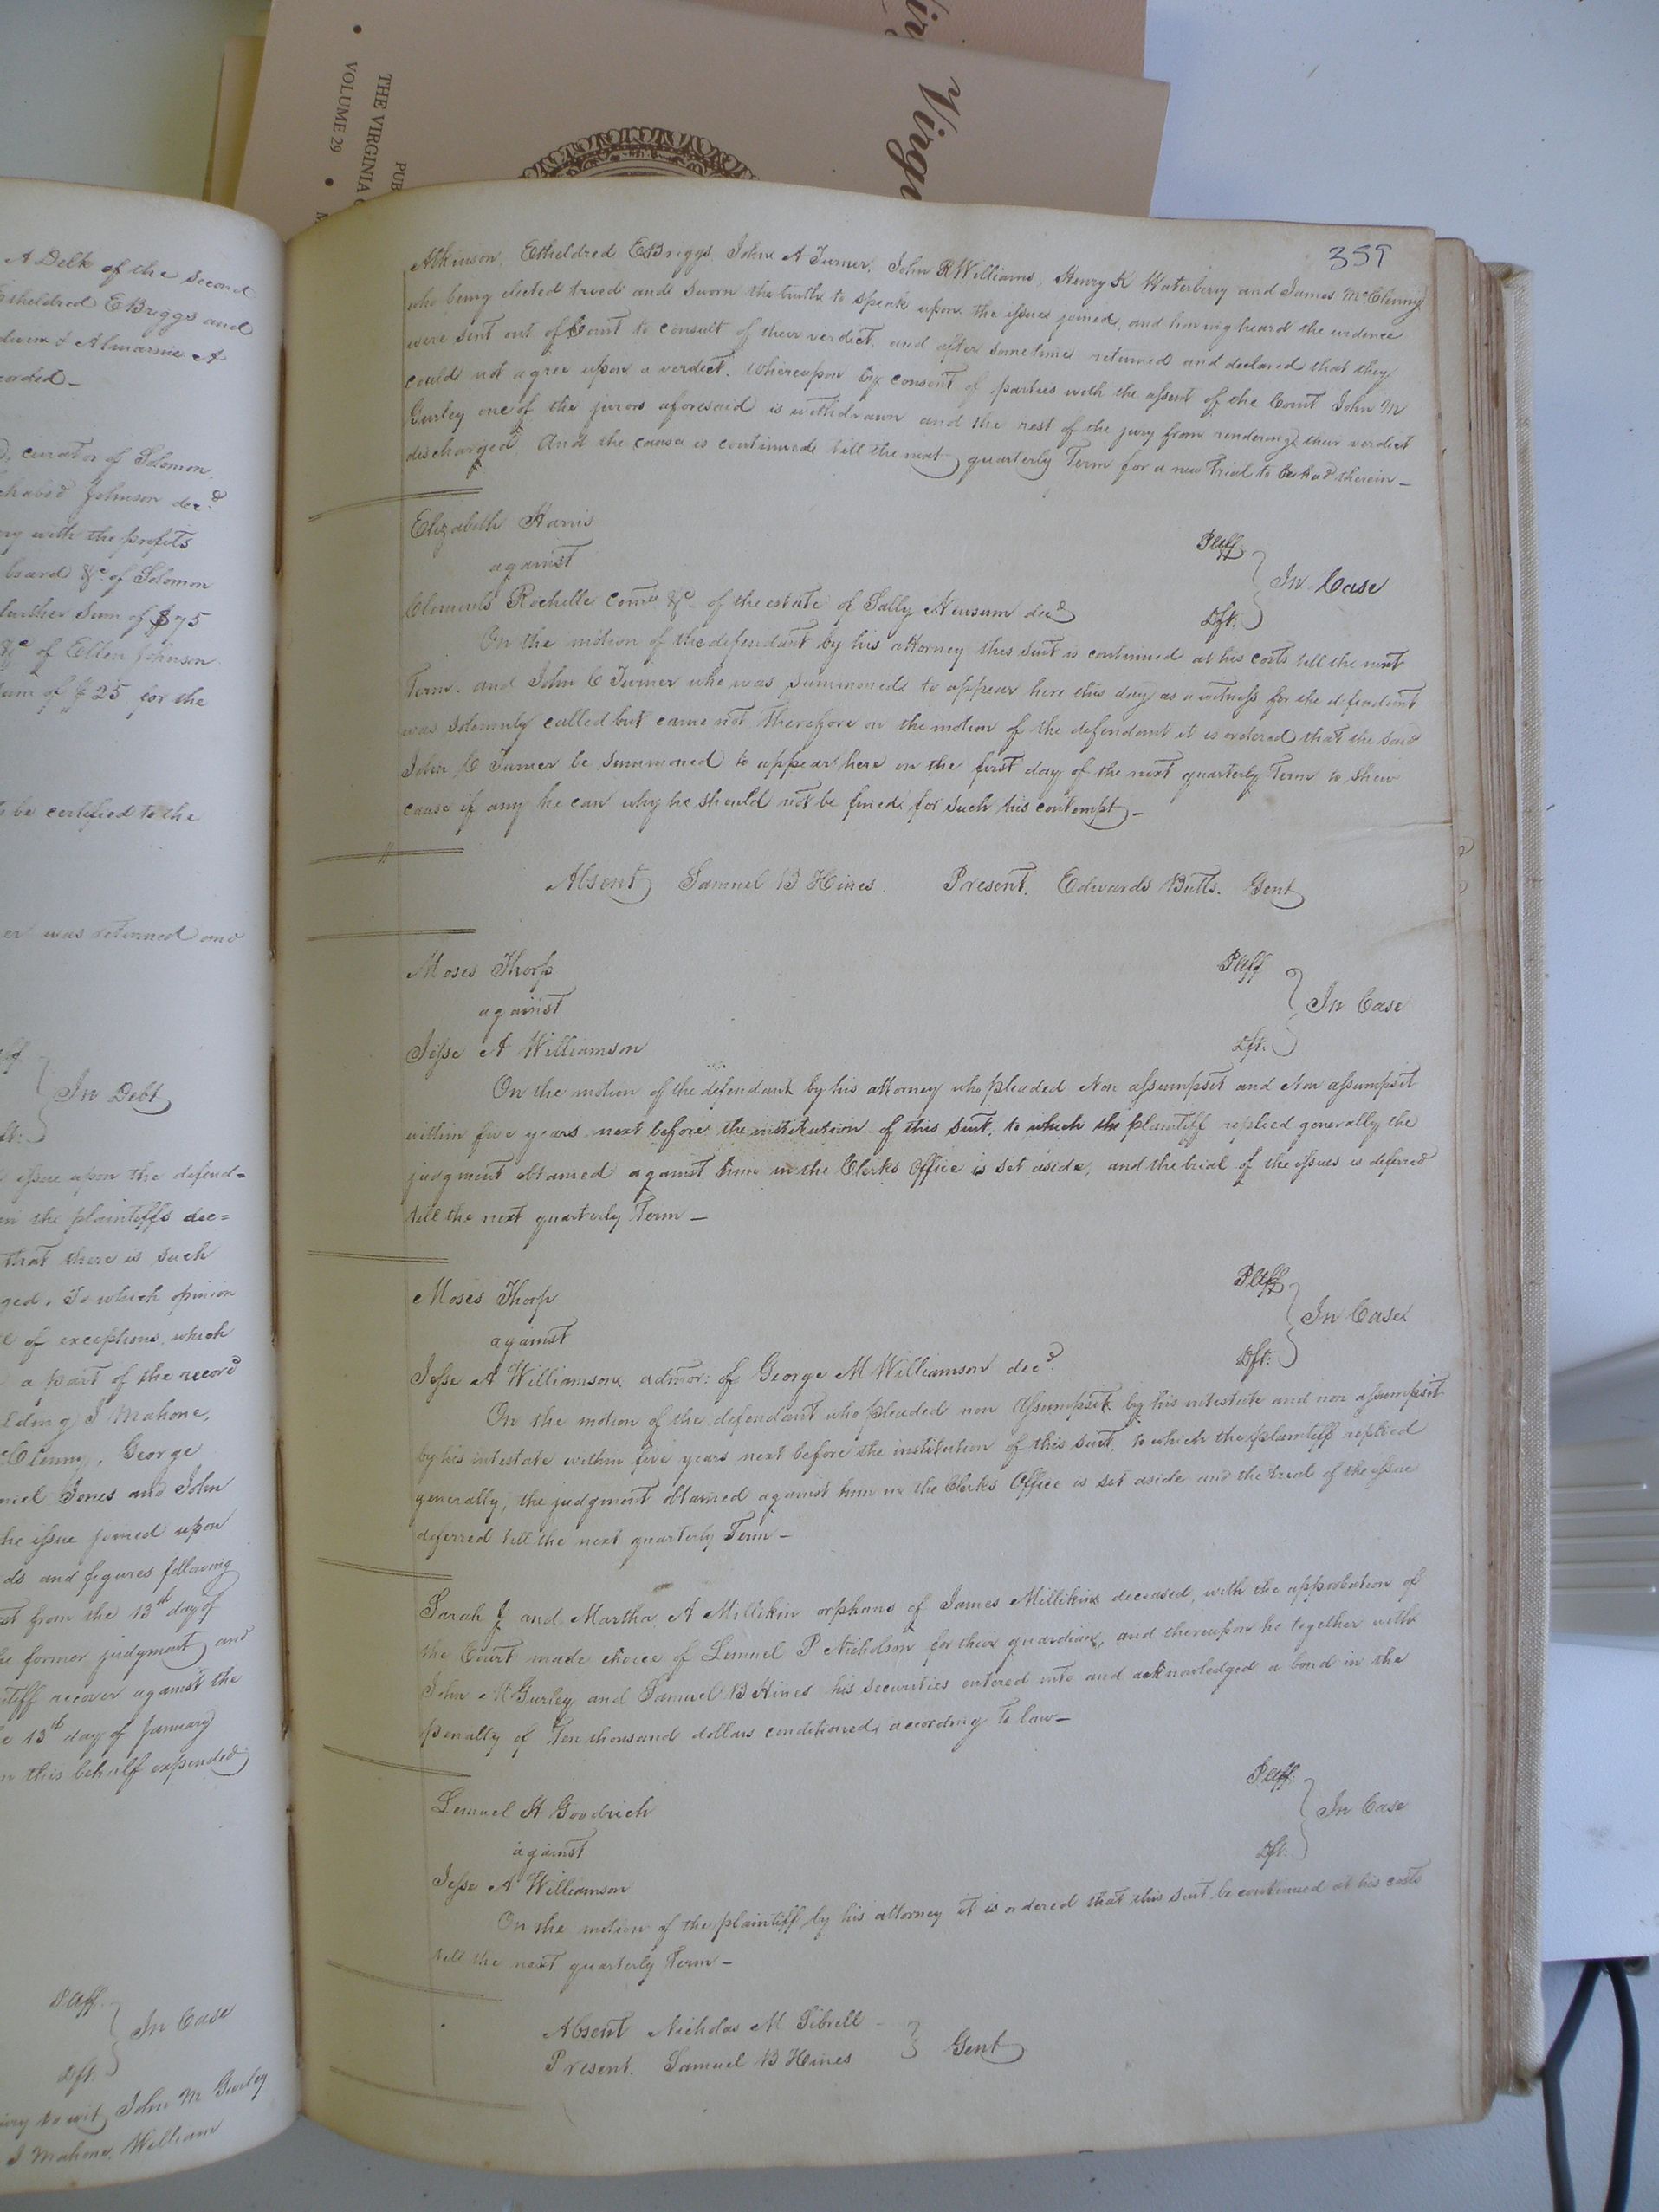 THE VIRGINIA
VOLUME 29
PUB
Virgi
A Delk of the second
Etheldred E Briggs and
Almarine A
corded_
curator of Solomon
Johnson dec.d
with the profits
board &c. of Solomon
further Sum of $75
&c of Ellen Johnson
Sum of $25 for the
to be certified to the
was returned and
In Debt
issue upon the defend=
in the plaintiffs dec=
that there is such
. To which opinion
of exceptions, which
a part of the record
J Mahone,
McClenny, George
Jones and John
the issue joined upon
ds and figures following
st from the 13th day of
former judgment and
recover against the
13th day of January
in this behalf expended
Plff.
In Case
Dft.
jury to wit, John M Gurley
J Mahone, William
359
Atkinson, Etheldred E Briggs, John A Turner, John R Williams, Henry K Waterberry and James McClenny
who being elected tried and sworn the truth to speak upon the issues joined, and having heard the evidence
were sent out of Court to consult of their verdict, and after sometime returned and declared that they
could not agree upon a verdict. Whereupon by consent of parties with the assent of the Court John M
Gurley one of the jurors aforesaid is withdrawn and the rest of the jury from rendering their verdict
discharged, And the cause is continued till the next quarterly Term for a new Trial to be had therein_
Elizabeth Harris Plff
against In Case
Clements Rochelle Comr &c. of the estate of Sally Newsum decd Dft.
On the motion of the defendant by his attorney this suit is continued at his costs till the next
Term. and John C Turner who was summoned to appear here this day as a witness for the defendant
was solemnly called but came not Therefore on the motion of the defendant it is ordered that the said
John C Turner be summoned to appear here on the first day of the next quarterly Term to shew
cause if any he can why he should not be fined for such his contempt_
Absent Samuel B Hines. Present. Edwards Butts. Gent
Moses Thorp Plff
against In Case
Jesse A Williamson Dft.
On the motion of the defendant by his attorney who pleaded Non assumpsit and Non assumpsit
within five years next before the institution of this suit, to which the plaintiff replied generally the
judgment obtained against him in the Clerks Office is set aside, and the trial of the issues is deferred
till the next quarterly Term_
Moses Thorp Plff
against In Case
Jesse A Williamson admor: of George M Williamson decd. Dft.
On the motion of the defendant who pleaded non Assumpsit by his intestate and non assumpsit
by his intestate within five years next before the institution of this suit, to which the plaintiff replied
generally, the judgment obtained against him in the Clerks Office is set aside and the trial of the issue
deferred till the next quarterly Term_
Sarah J and Martha A Millikin orphans of James Millikins deceased, with the approbation of
the Court made choice of Lemuel P Nicholson for their guardian, and thereupon he together with
John M Gurley and Samuel B Hines his securities entered into and acknowledged a bond in the
penalty of Ten thousand dollars conditioned according to law_
Lemuel H Goodrich Plff.
against In Case
Jesse A Williamson Dft.
On the motion of the plaintiff by his attorney it is ordered that this suit be continued at his costs
till the next quarterly Term_
Absent Nicholas M Sebrell
Present. Samuel B Hines Gent